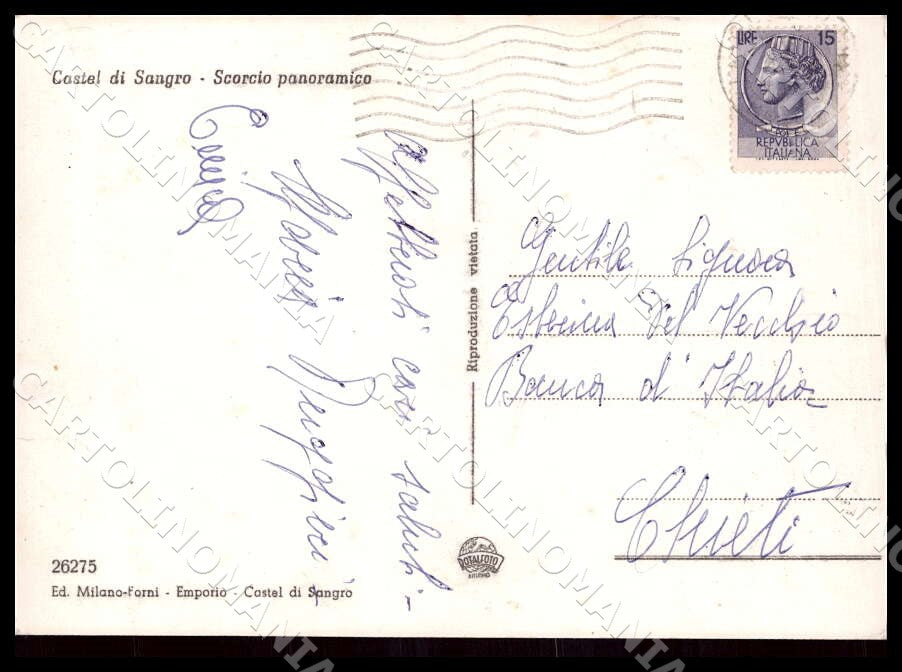 Castel di Sangro - Scorcio panoramico
LIRE 15
REPVBBLICA
ITALIANA
affettuosi cari saluti -
Maria
Reggiani -
Gentile Signora
Esterina Del Vecchio
Banca d'Italia
Chieti
Riproduzione vietata
ROTALFOTO
MILANO
26275
Ed. Milano-Forni - Emporio - Castel di Sangro
CARTOLINOMANIA